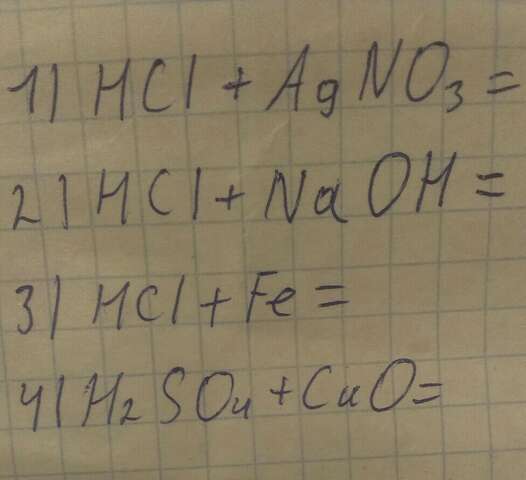 1) HCl + AgNO₃ =
2) HCl + NaOH =
3) HCl + Fe =
4) H₂SO₄ + CuO =